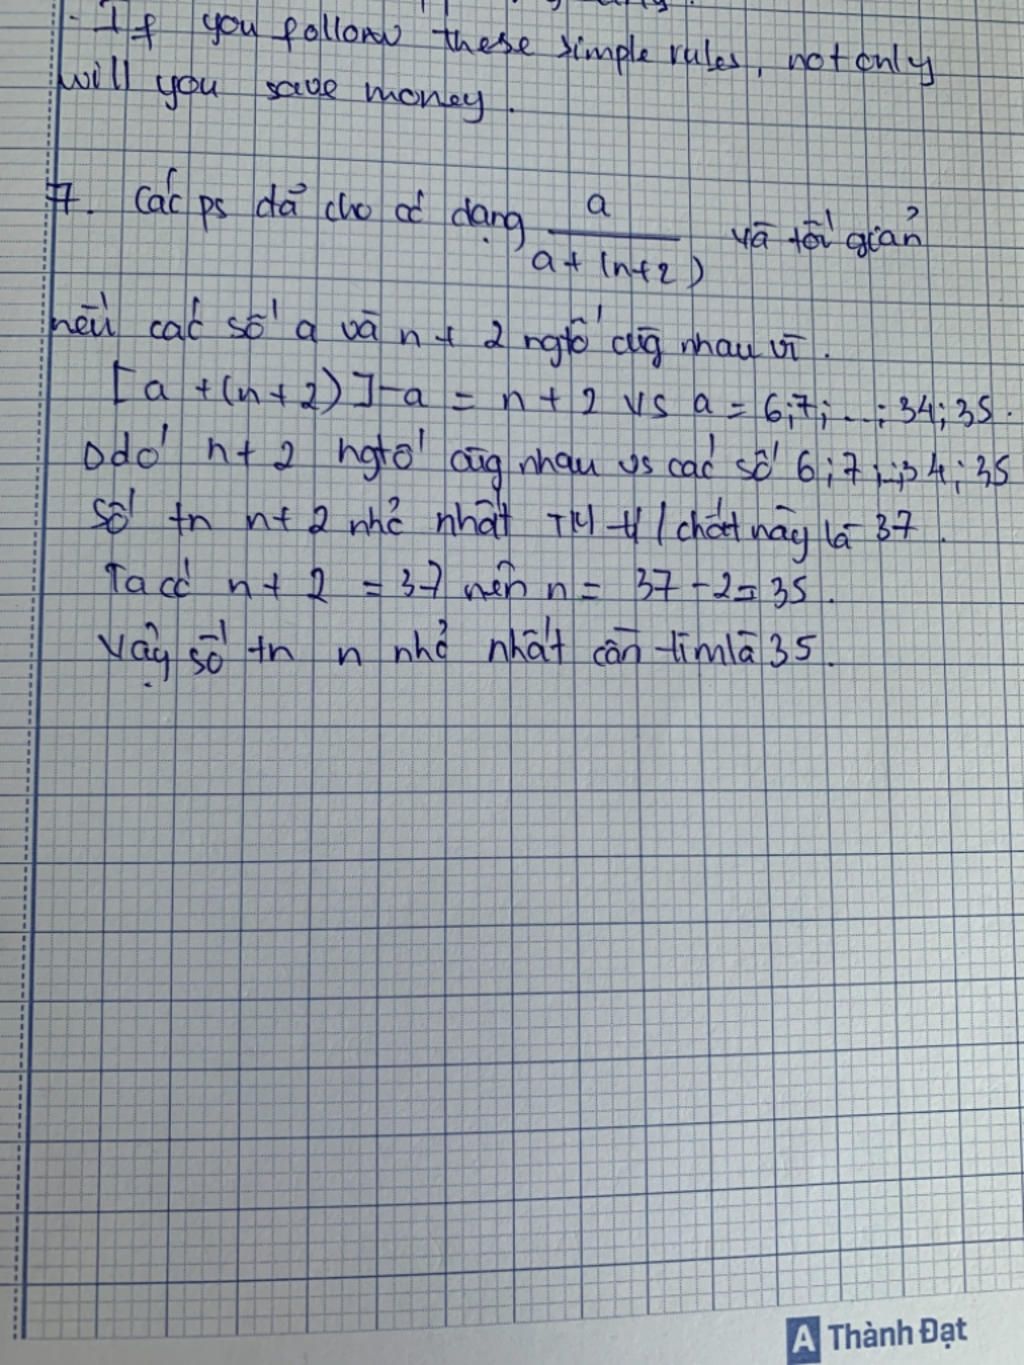 - If you follow these simple rules, not only
will you save money.
7. Các ps đã cho có dạng a / a + (n+2) và tối giản
nếu các số a và n + 2 ngtố cùg nhau vì.
[a + (n+2)] - a = n + 2 vs a = 6;7;...;34;35.
Do đó n + 2 ngtố cùg nhau vs các số 6;7;...;34;35
Số tn n + 2 nhỏ nhất TM t/chất này là 37.
Ta có n + 2 = 37 nên n = 37 - 2 = 35.
Vậy số tn n nhỏ nhất cần tìm là 35.
A Thành Đạt